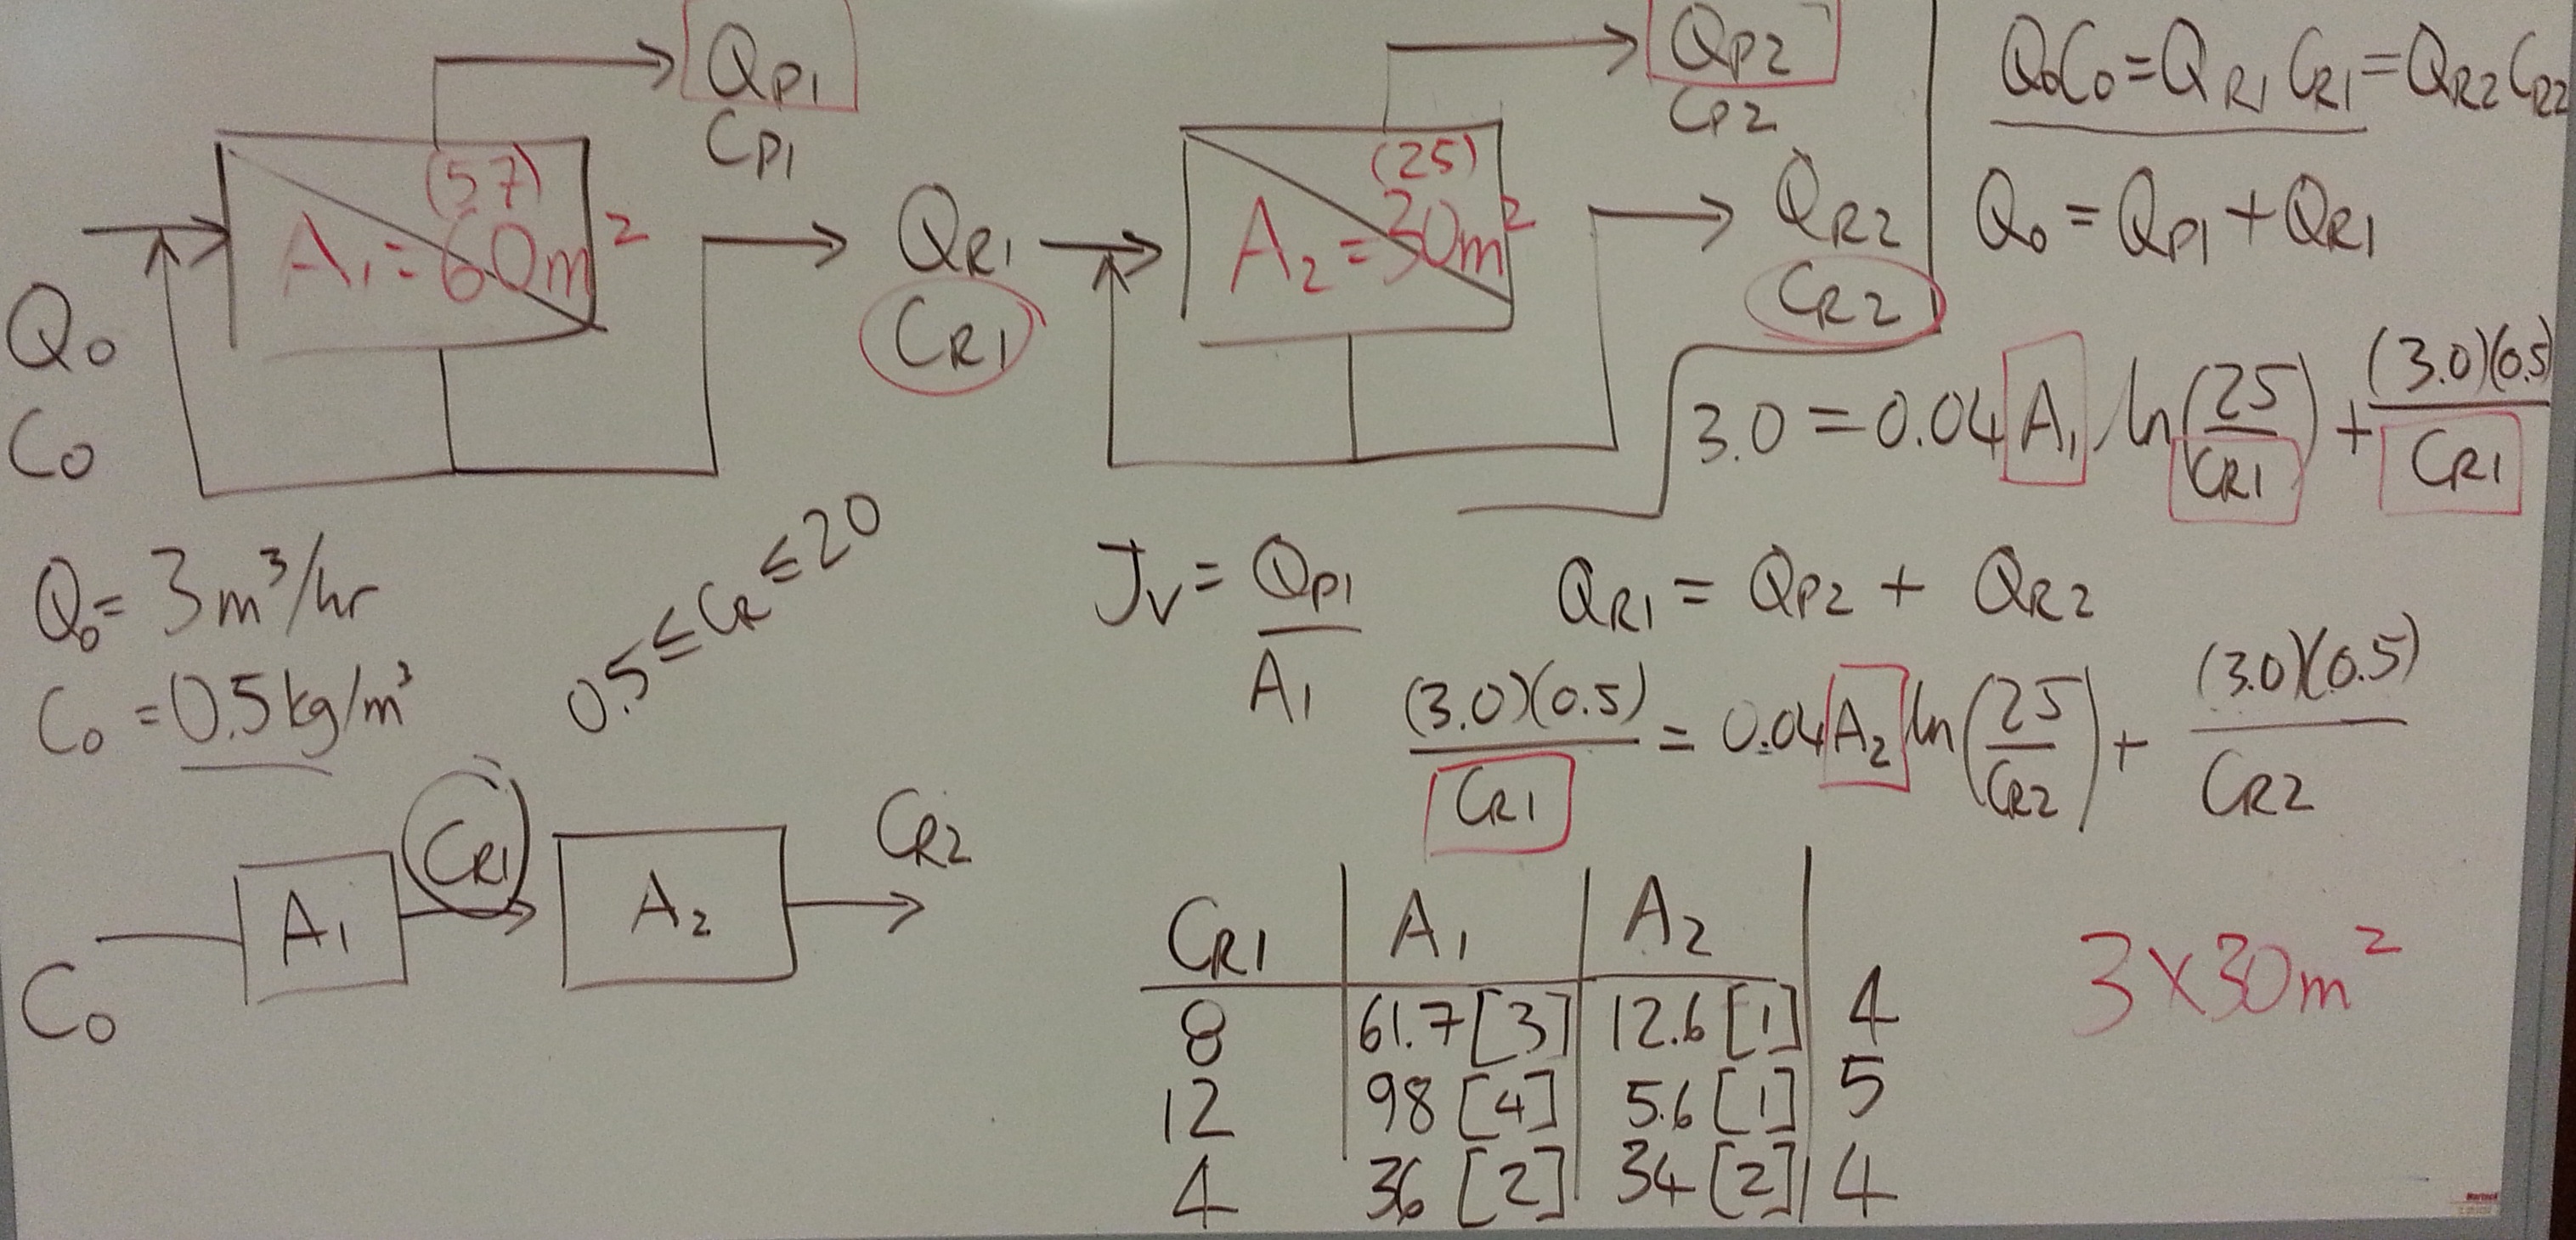 Q_P1
C_P1
(57)
A_1 = 60m^2
Q_0
C_0
Q_R1
C_R1
Q_P2
C_P2
(25)
A_2 = 30m^2
Q_R2
C_R2
Q_0C_0 = Q_R1 C_R1 = Q_R2 C_R2
Q_0 = Q_P1 + Q_R1
3.0 = 0.04 A_1 ln(25/C_R1) + (3.0)(0.5)/C_R1
Q_0 = 3 m^3/hr
C_0 = 0.5 kg/m^3
0.5 ≤ C_R ≤ 20
J_V = Q_P1/A_1
Q_R1 = Q_P2 + Q_R2
(3.0)(0.5)/C_R1 = 0.04 A_2 ln(25/C_R2) + (3.0)(0.5)/C_R2
C_0
A_1
C_R1
A_2
C_R2
C_R1 A_1 A_2
8 61.7 [3] 12.6 [1] 4
12 98 [4] 5.6 [1] 5
4 36 [2] 34 [2] 4
3 × 30m^2